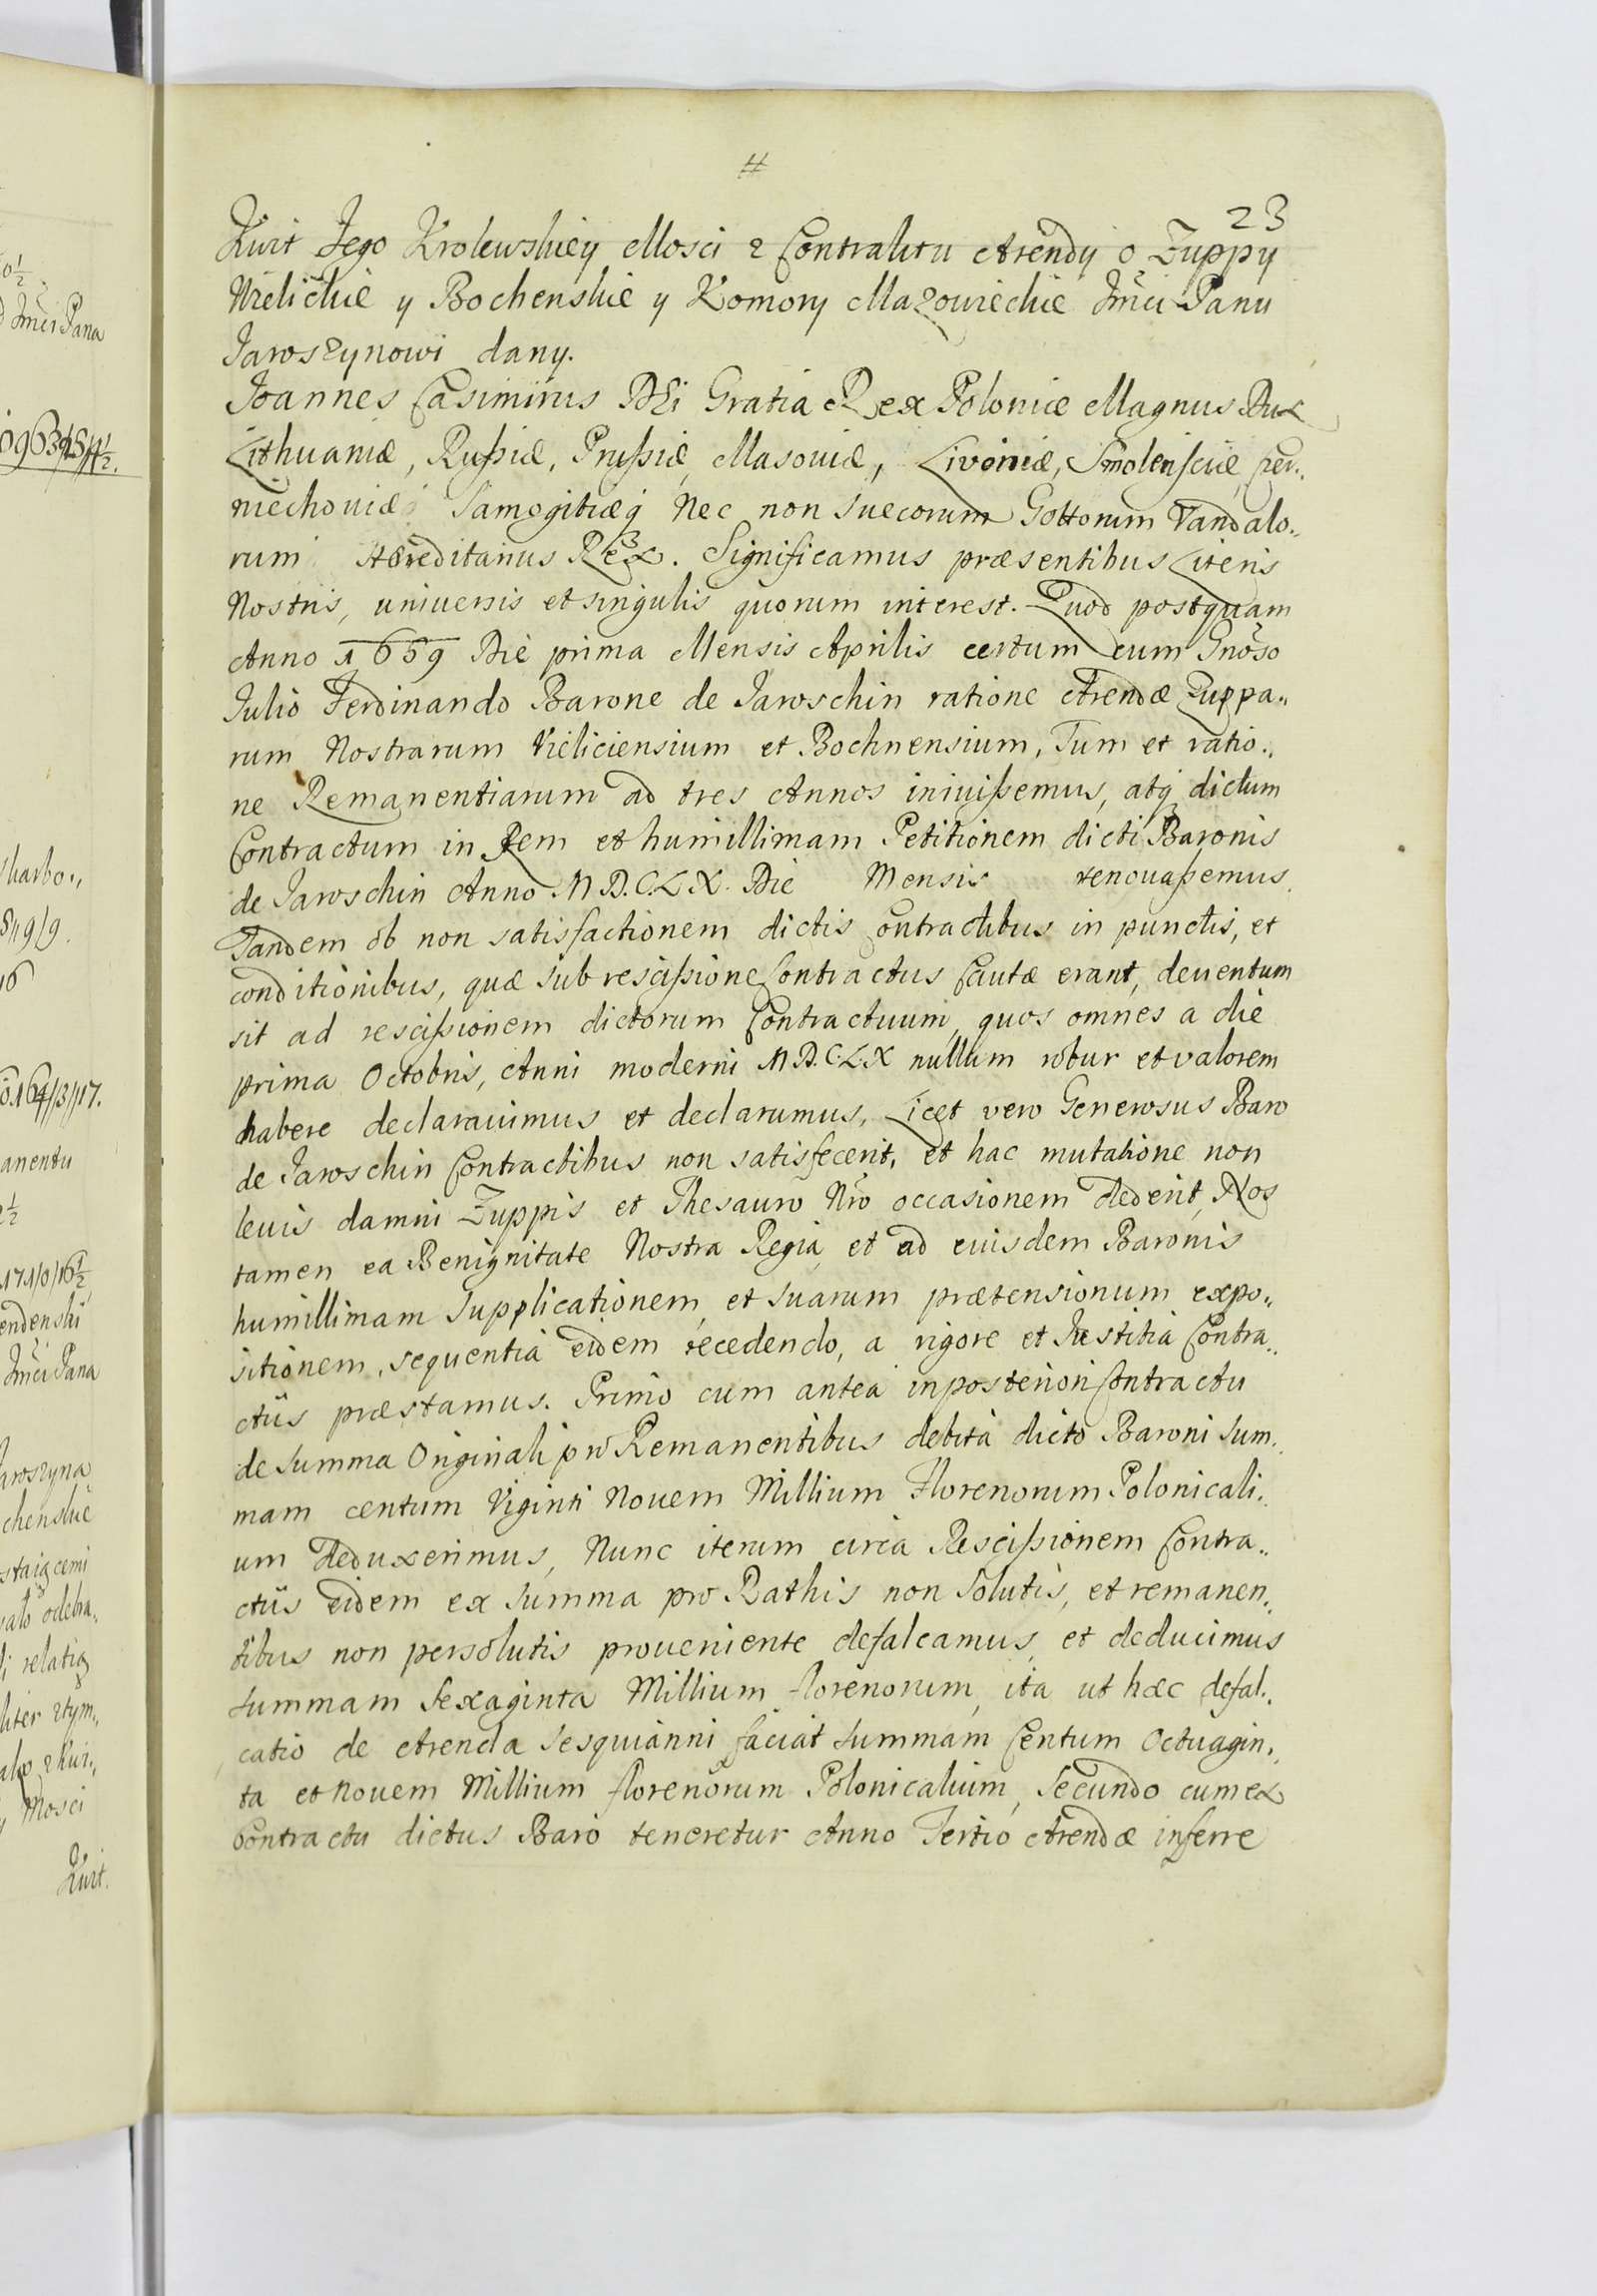 #
23
Kwit Jego Krolewskiey Mosci z Contraktu Arendy o Zuppy
Wielickie y Bochenskie y Komory Mazowieckie Jm̃ci Panu
Jaroszynowi dany.
Joannes Casimirus DEi Gratia Rex Poloniæ Magnus Dux
Lithuaniæ, Rußiæ, Prußiæ, Masouiæ, Livoniæ, Smolensciæ, Czer„
niechouiæ Samogitiæq Nec non Suecorum Gottorum Vandalo„
rum Hæreditarius Rex. Significamus præsentibus Literis
Nostris, uniuersis et singulis quorum interest. Quod postquam
Anno 1659 Die prima Mensis Aprilis certum cum Gnõso
Julio Ferdinando Barone de Jaroschin ratione Arendæ Zuppa„
rum Nostrarum Vieliciensium et Bochnensium, Tum et ratio„
ne Remanentiarum ad tres Annos iniuißemus, atq dictum
Contractum in Rem et humillimam Petitionem dicti Baronis
de Jaroschin Anno M.D.C.L.X. Die Mensis renouaßemus
Tandem ob non satisfactionem dictis Contractibus in punctis, et
conditionibus, quæ sub rescißione Contractus Cautæ erant, deuentum
sit ad rescißionem dictorum Contractuum, quos omnes a die
prima Octobris, Anni moderni M.D.C.L.X nullum robur et valorem
habere declarauimus et declaramus, Licet vero Generosus Baro
de Jaroschin Contractibus non satisfecerit, et hac mutatione non
leuis damni Zuppis et Thesauro Nr̃o occasionem dederit, Nos
tamen ea Benignitate Nostra Regia, et ad eiusdem Baronis
humillimam Supplicationem, et suarum prætensionum expo„
sitionem, sequentia eidem recedendo, a rigore et Iustitia Contra„
ctûs præstamus. Primo cum antea in posteriori Contractu
de Summa Originali pro Remanentibus debita dicto Baroni Sum„
mam centum Viginti Nouem Millium Florenorum Polonicali„
um deduxerimus, Nunc iterum circa Rescißionem Contra„
ctûs eidem ex Summa pro Rathis non Solutis, et remanen„
tibus non persolutis proueniente defalcamus, et deducimus
Summam Sexaginta Millium florenorum, ita ut hæc defal„
catio de Arenda Sesquianni faciat Summam Centum Octuagin„
ta et Nouem Millium florenorum Polonicalium, Secundo cum ex
Contractu dictus Baro teneretur Anno Tertio Arendæ inferre